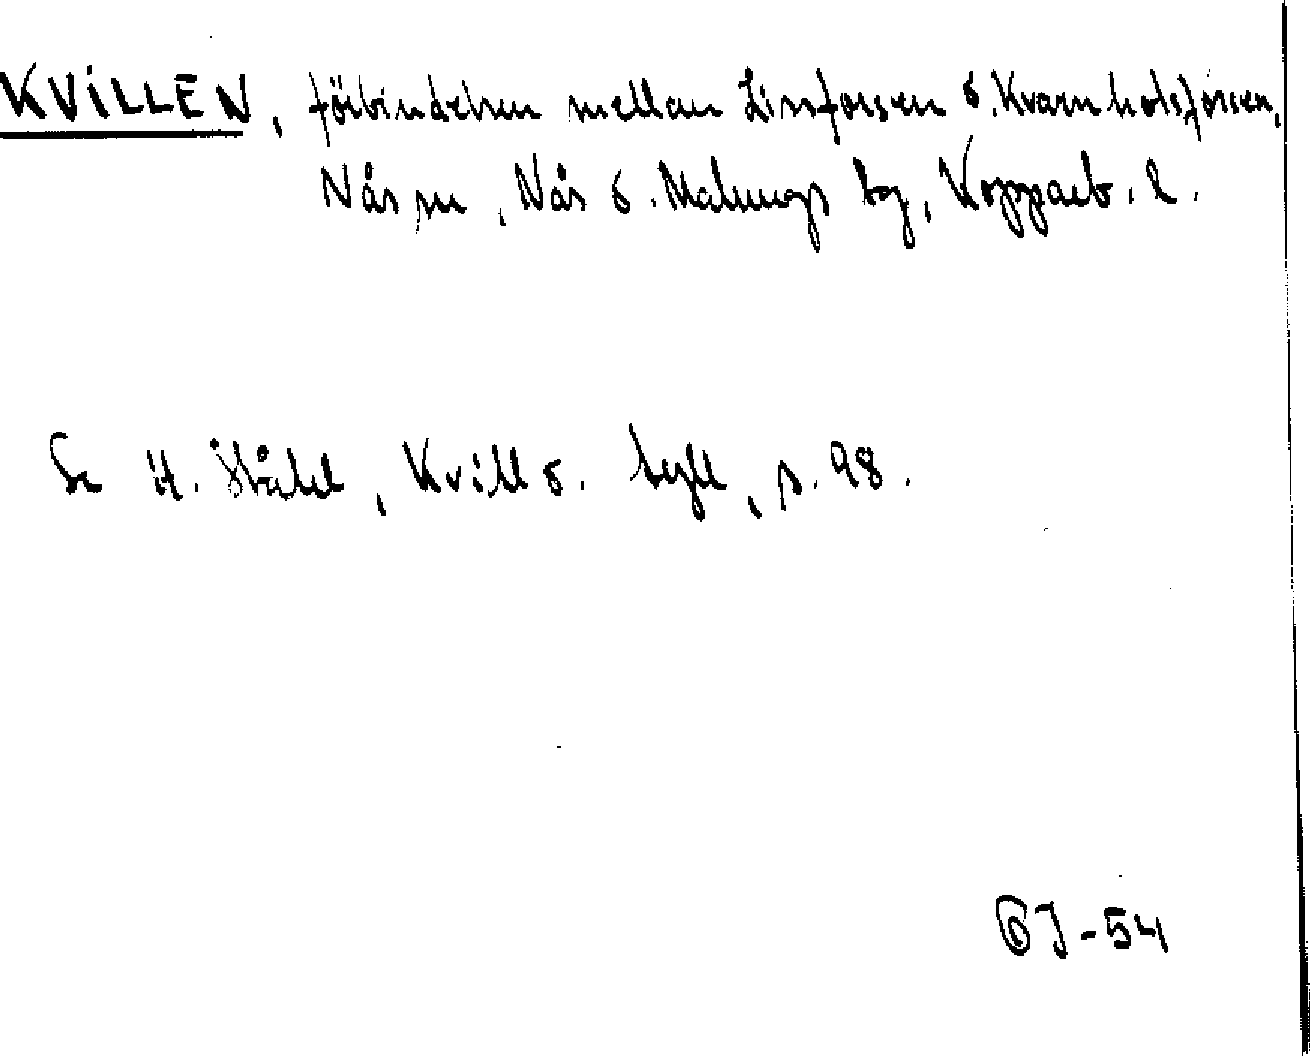 KVILLEN, förbindelsen mellan Limforsen o. Kvarnholsforsen,
Nås sn, Nås o. Malungs tg, Kopparb. l.
Se H. Ståhl, Kvill o. tyll, s. 98.
-54